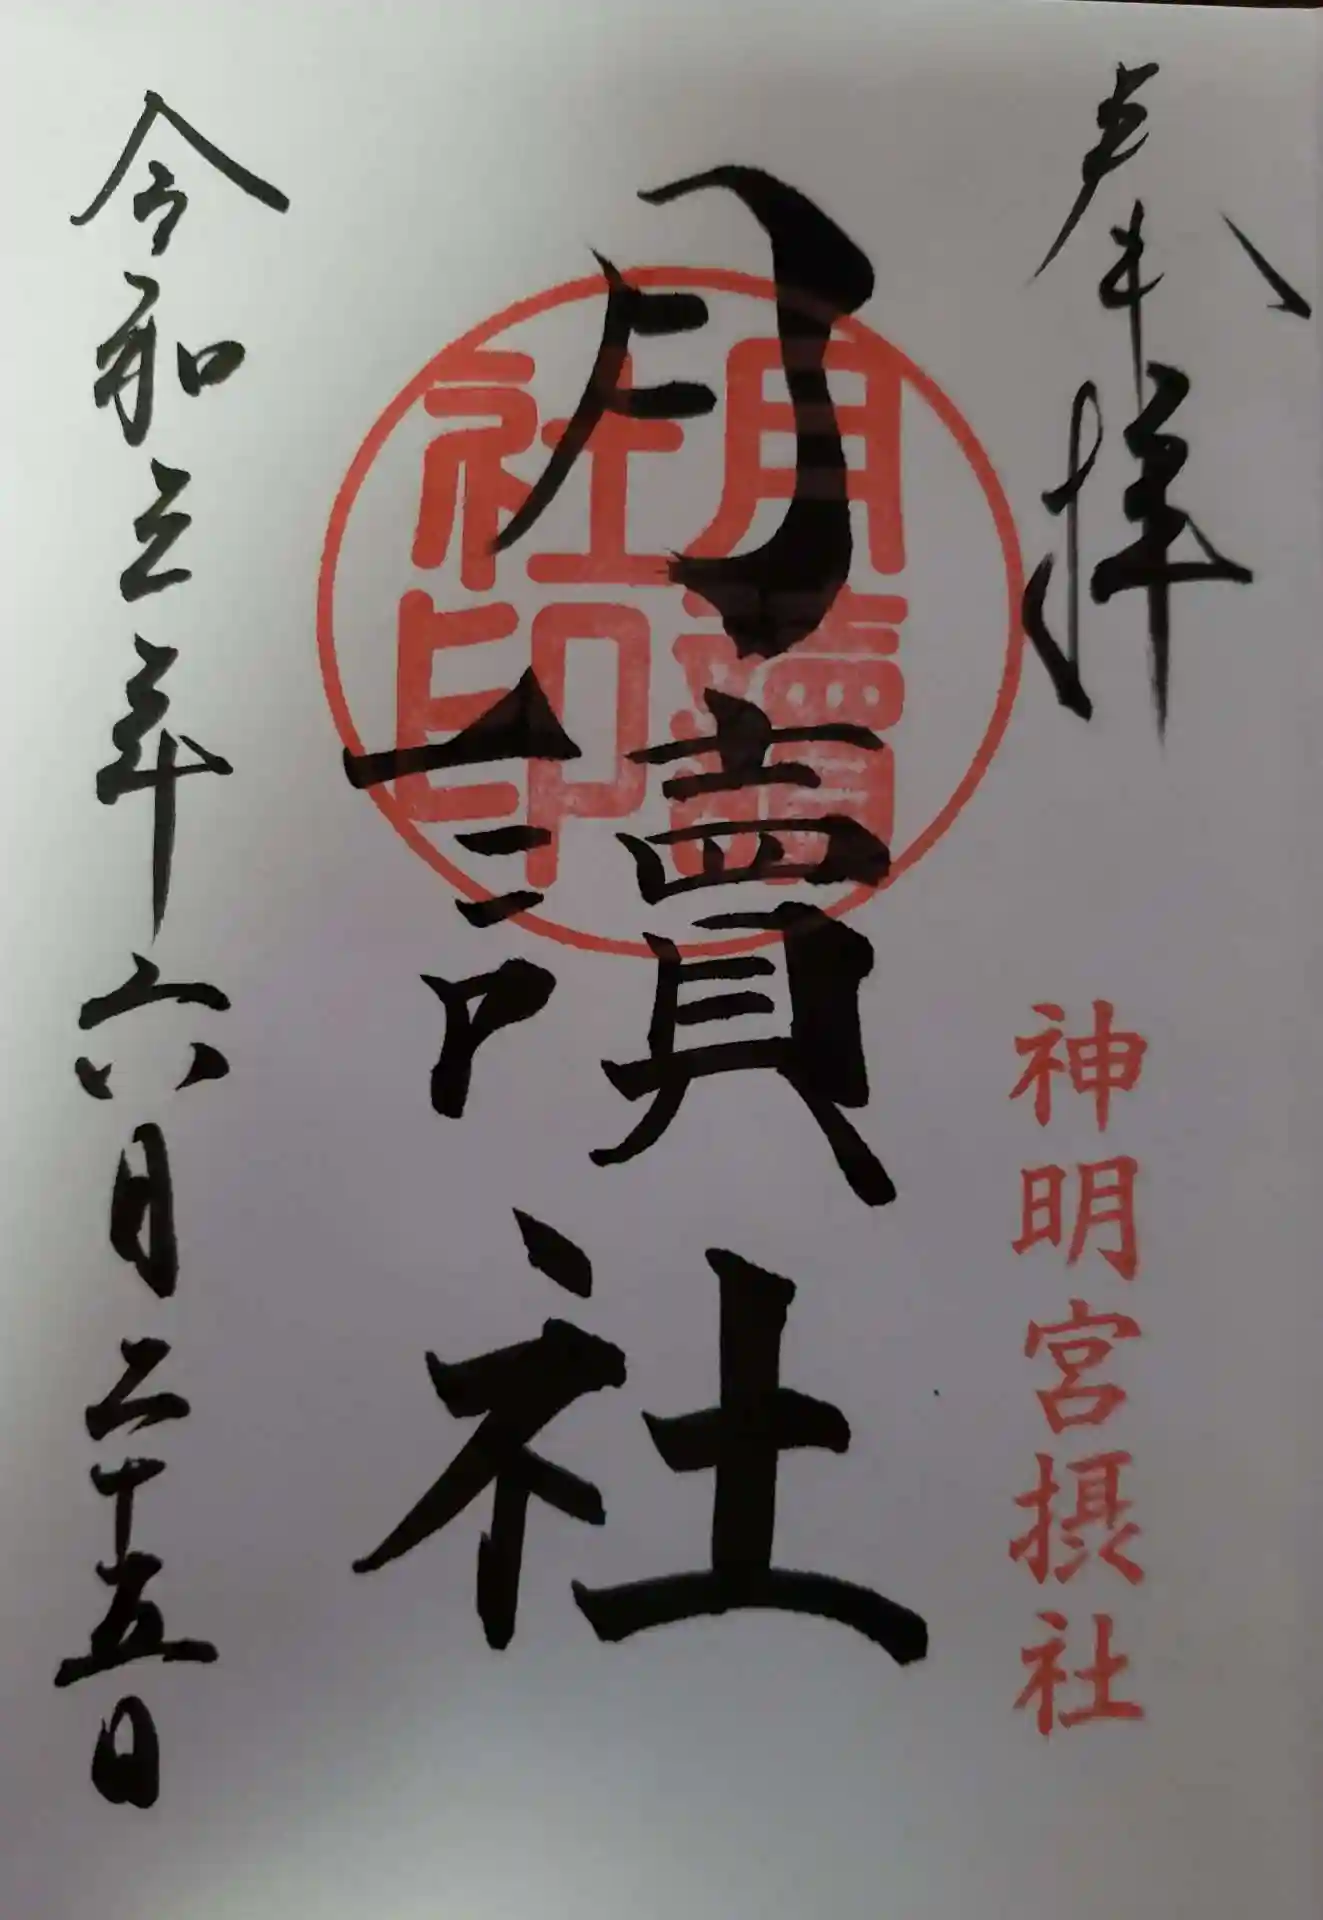 奉拝
神明宮摂社
月讀社
月讀
社印
令和三年六月二十五日